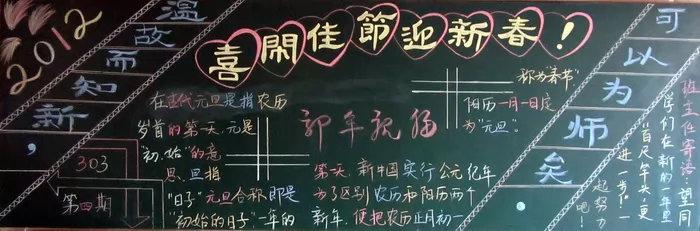 2012
温故而知新，
303
第四期
喜闹佳節迎新春！
在古代元旦是指农历
岁首的第一天.元是
"初.始"的意
思.旦指
"日子"元旦合称即是
"初始的日子".一年的
新年祝福
第一天.新中国实行公元纪年
为了区别农历和阳历两个
新年,便把农历正月初一
称为"春节"
阳历一月一日定
为"元旦".
可以为师矣
班主任寄语：望同
学们在新的一年里
"百尺竿头,更
进一步!"一
起努力
吧!